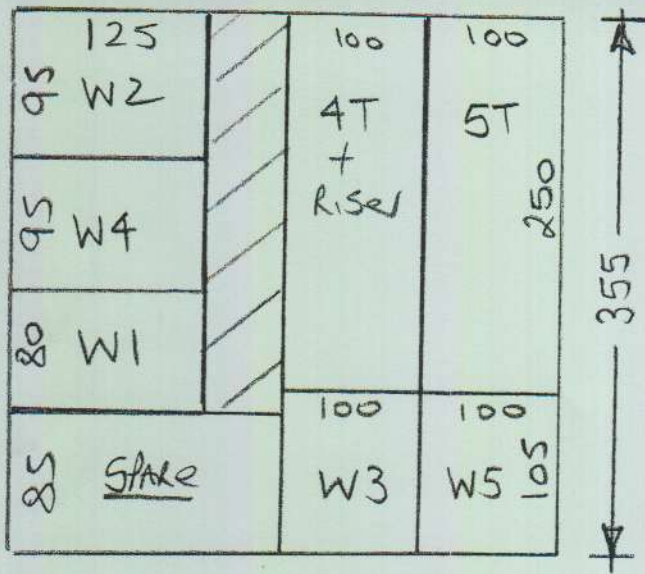 125
95 W2
95 W4
80 W1
85 SPARE
100
4T
+
Riser
100
5T
250
100
W3
100
W5 105
355